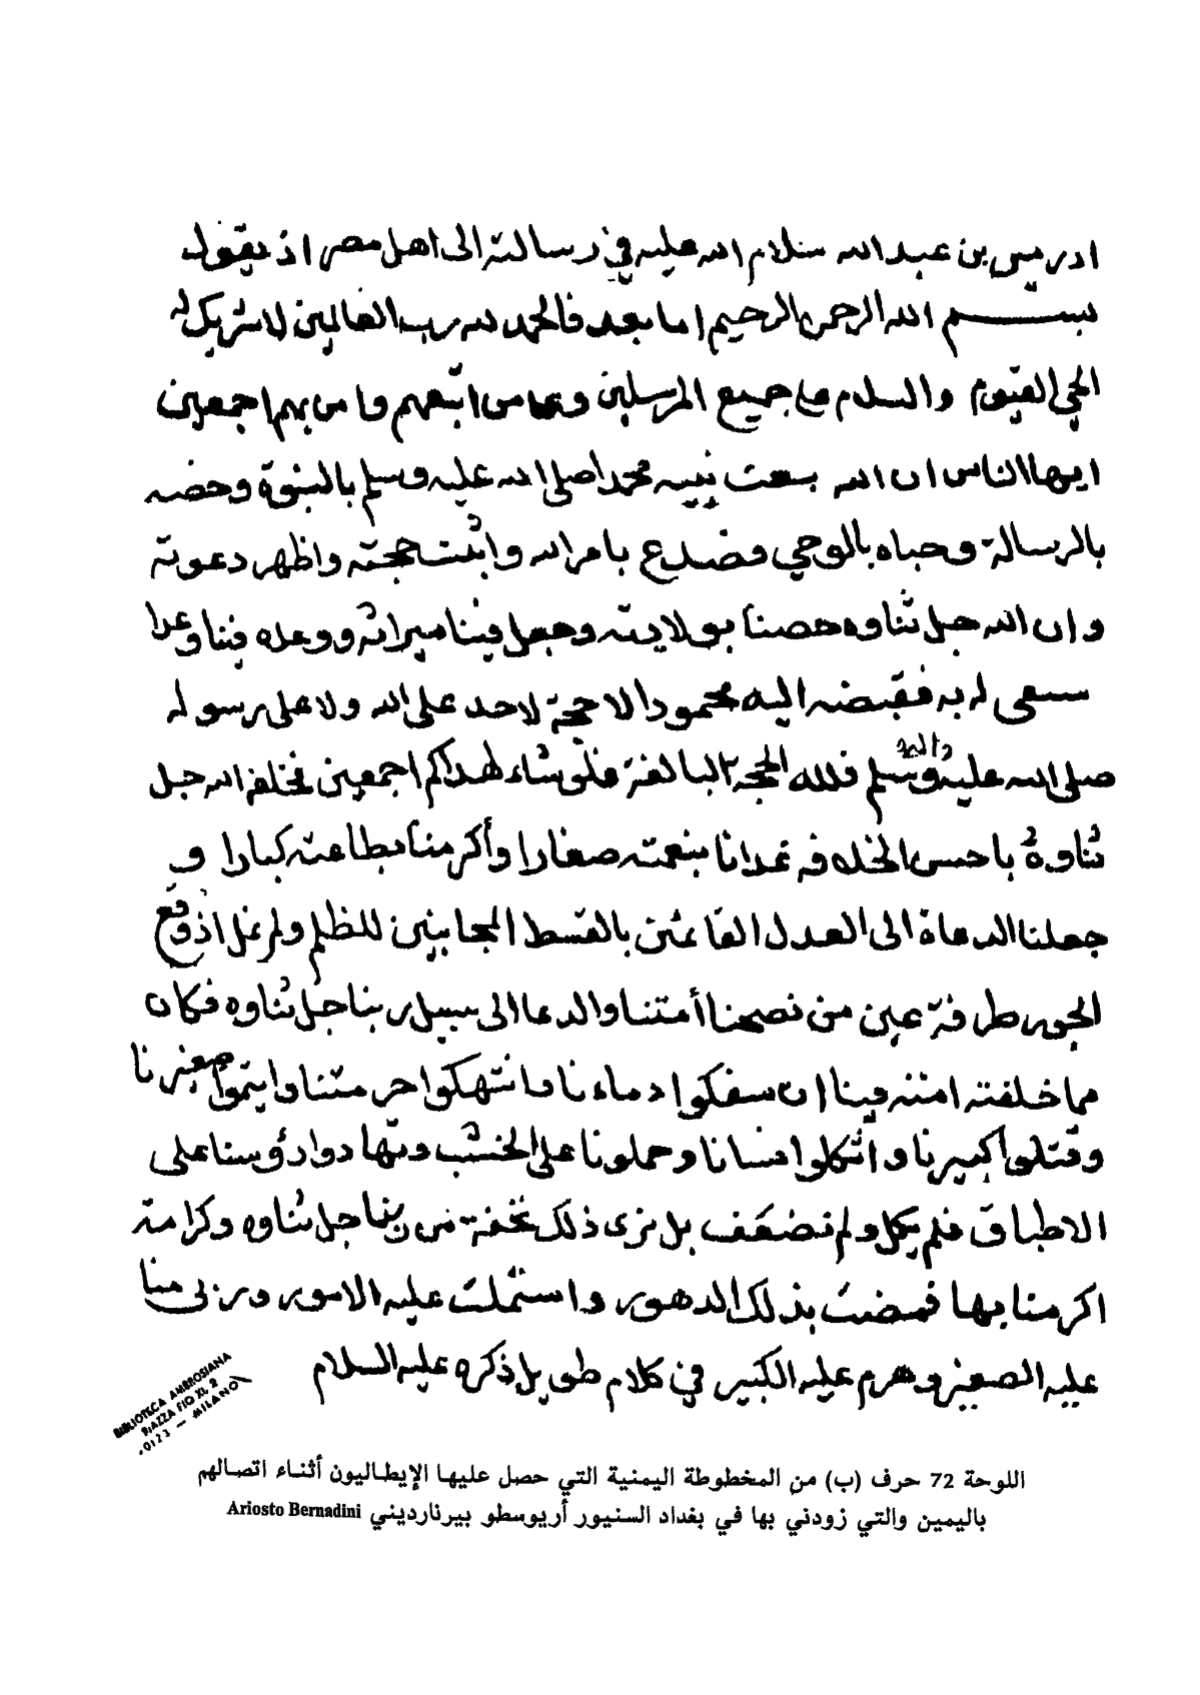 ادريس بن عبد الله سلام الله عليه في رسالته الى اهل مصر اذ يقول
بسم الله الرحمن الرحيم اما بعد فالحمد لله رب العالمين لا شريك له
الحي القيوم والسلام على جميع المرسلين وعلى من اتبعهم وامن بهم اجمعين
ايها الناس ان الله بعث نبيه محمدا صلى الله عليه وسلم بالنبوة وخصه
بالرسالة وحباه بالوحي فصدع بامر الله واثبت حجته واظهر دعوته
وان الله جل ثناوه خصنا بولايته وجعل فينا ميراثه ووعده فينا وعدا
سعى له به فقبضه اليه محمودا لا حجة لاحد على الله ولا على رسوله
صلى الله عليه واله وسلم فلله الحجة البالغة فلو شاء لهداكم اجمعين فخلفه الله جل
ثناوه باحسن الخلافه غدانا بنعمته صغارا وأكرمنا بطاعته كبارا و
جعلنا الدعاة الى العدل القائمين بالقسط المجانبين للظلم ولم نمل اذ وقع
الجور طرفة عين من نصحنا أمتنا والدعا الى سبيل ربنا جل ثناوه فكان
مما خلفته امته فينا ان سفكوا دماءنا وانتهكوا حرمتنا وايتموا صغيرنا
وقتلوا كبيرنا واثكلوا نسانا وحملونا على الخشب وتهادوا رؤسنا على
الاطباق فلم نكل ولم نضعف بل نرى ذلك تحفة من ربنا جل ثناوه وكرامة
اكرمنا بها فمضت بذلك الدهور واشتملت عليه الامور وربى منا
عليه الصغير وهرم عليه الكبير في كلام طويل ذكره عليه السلام
BIBLIOTECA AMBROSIANA
PIAZZA PIO XI, 2
20123 — MILANO
اللوحة 72 حرف (ب) من المخطوطة اليمنية التي حصل عليها الإيطاليون أثناء اتصالهم
باليمين والتي زودني بها في بغداد السنيور أريوسطو بيرنارديني Ariosto Bernadini